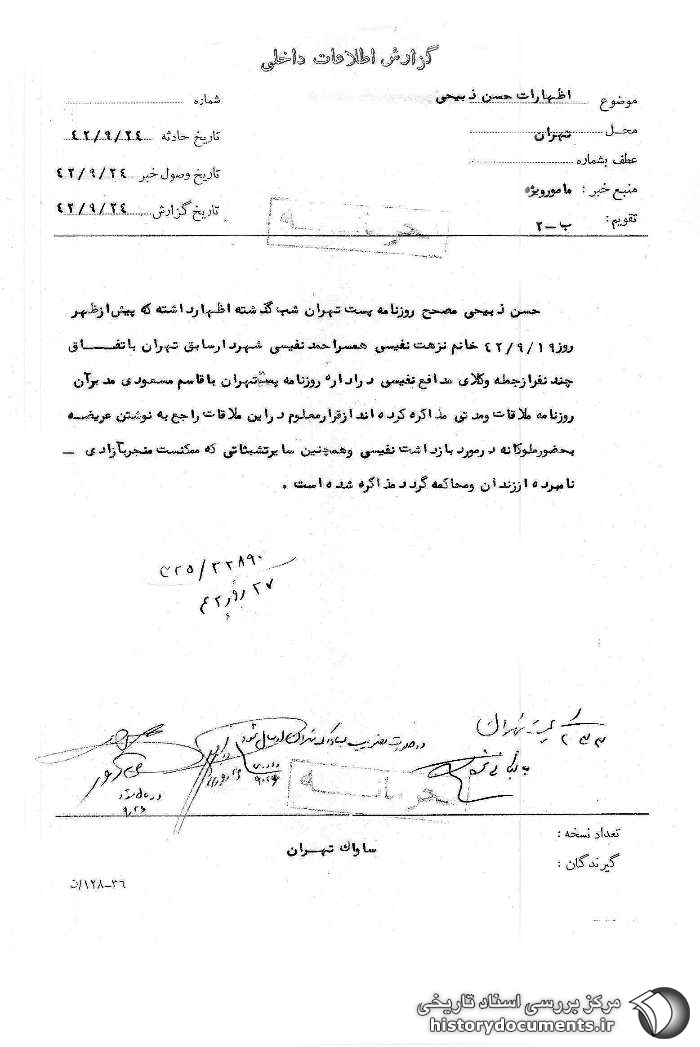 گزارش اطلاعات داخلی
موضوع اظهارات حسن ذبیحی
محل تهران
عطف بشماره
منبع خبر : مامورویژه
تقویم : ب - ۲
شماره
تاریخ حادثه ۴۲/۹/۲۴
تاریخ وصول خبر ۴۲/۹/۲۴
تاریخ گزارش ۴۲/۹/۲۴
محرمانه
حسن ذبیحی مصحح روزنامه پست تهران شب گذشته اظهارداشته که پیش‌ازظهر
روز ۴۲/۹/۱۹ خانم نزهت نفیسی همسراحمد نفیسی شهردارسابق تهران باتفــــاق
چند نفرازجمله وکلای مدافع نفیسی دراداره روزنامه پست‌تهران باقاسم مسعودی مدیرآن
روزنامه ملاقات ومدتی مذاکره کرده‌اند ازقرارمعلوم دراین ملاقات راجع به نوشتن عریضــه
بحضورملوکانه درمورد بازداشت نفیسی وهمچنین سایرتشبثاتی که ممکنست منجربآزادی ـ
نامبرده اززندان ومحاکمه گردد مذاکره شده است .
۳۲۵/۲۲۸۹۰
در صورت تصویب به ساواک تهران ارسال شود
محرمانه
تعداد نسخه :
گیرندگان :
ساواک تهــران
۳۶-۱۲۸/ت
مرکز بررسی اسناد تاریخی
historydocuments.ir